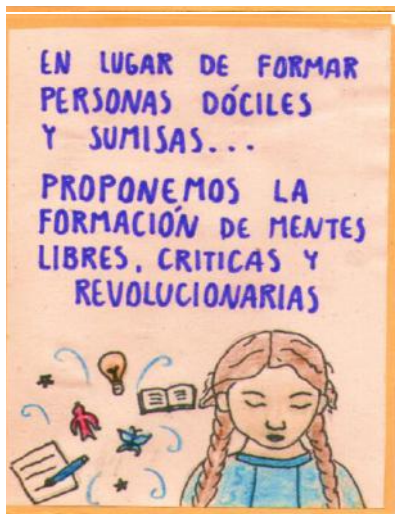 EN LUGAR DE FORMAR
PERSONAS DÓCILES
Y SUMISAS...
PROPONEMOS LA
FORMACIÓN DE MENTES
LIBRES, CRITICAS Y
REVOLUCIONARIAS